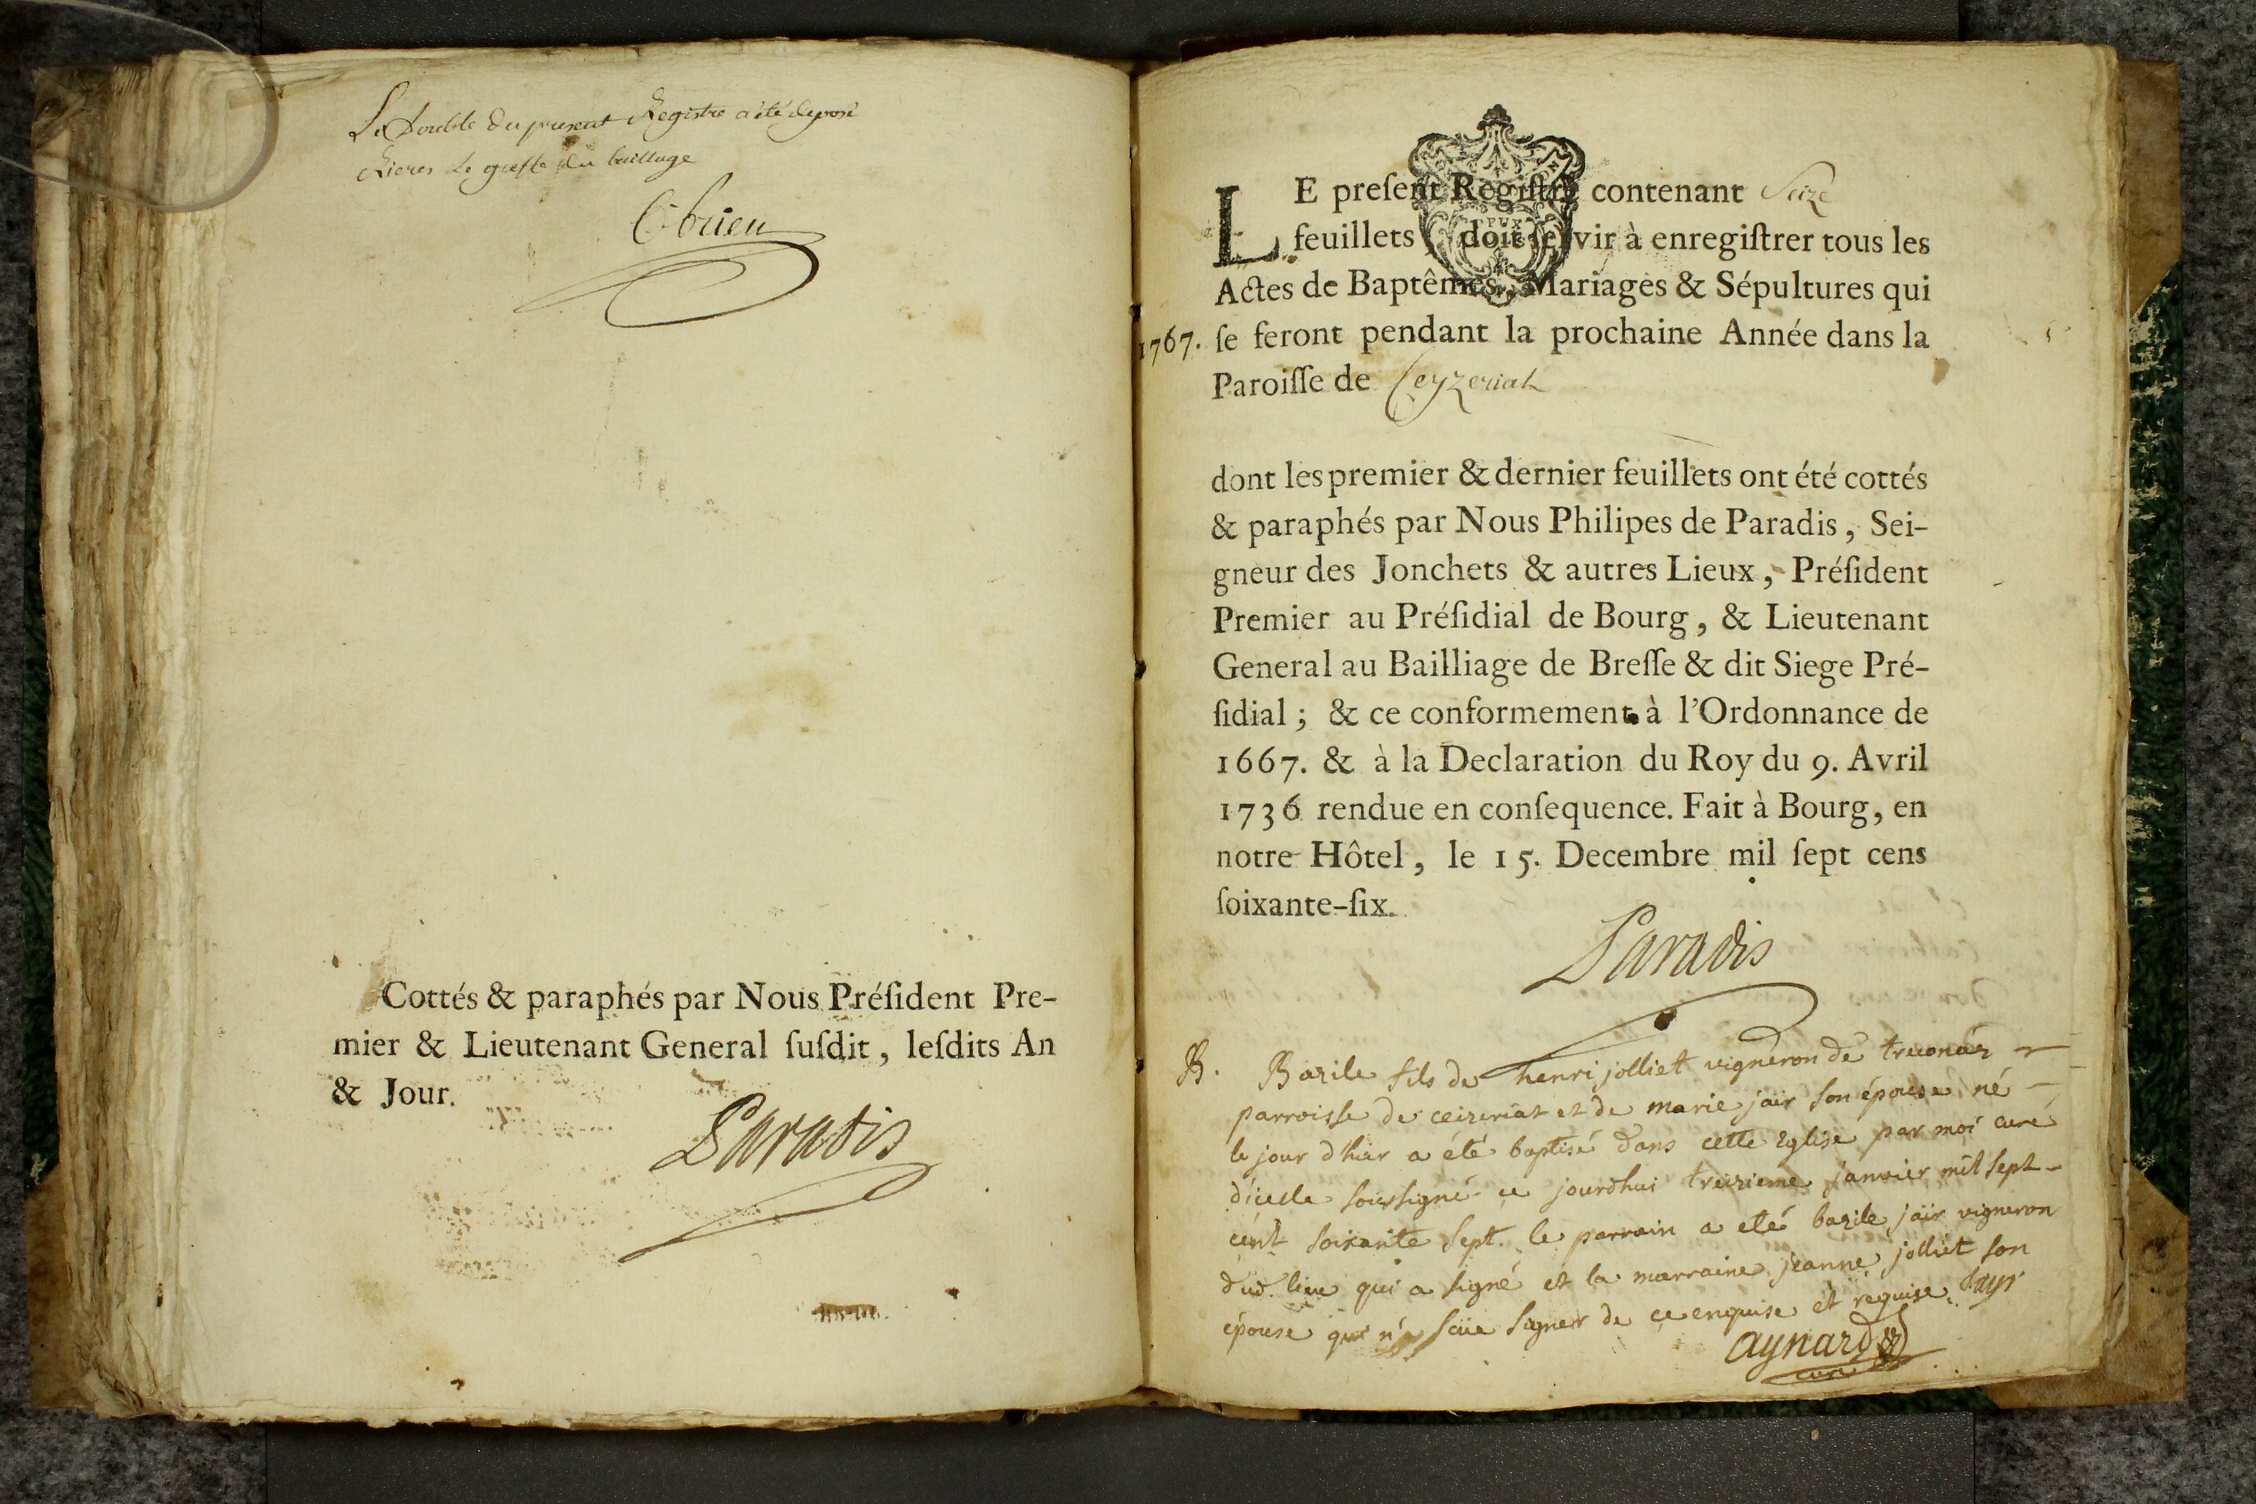 Le Double du present Registre a été déposé
Rieres le greffe du bailliage
Cottés & paraphés par Nous Préſident Pre-
mier & Lieutenant General ſuſdit, leſdits An
& Jour.
Paradis
LE preſent Regiſtre contenant Seize
feuillets, doit ſervir à enregiſtrer tous les
Actes de Baptêmes, Mariages & Sépultures qui
1767. ſe feront pendant la prochaine Année dans la
Paroiſſe de Ceyzeriat
dont les premier & dernier feuillets ont été cottés
& paraphés par Nous Philipes de Paradis, Sei-
gneur des Jonchets & autres Lieux, Préſident
Premier au Préſidial de Bourg, & Lieutenant
General au Bailliage de Breſſe & dit Siege Pré-
ſidial; & ce conformement à l'Ordonnance de
1667. & à la Declaration du Roy du 9. Avril
1736 rendue en conſequence. Fait à Bourg, en
notre Hôtel, le 15. Decembre mil ſept cens
ſoixante-ſix.
Paradis
B. Bazile fils de henri jolliet vigneron de
parroisse de ceizeriat et de marie jaïr son épouse né
le jour d'hier a été baptisé dans cette Eglise par moi curé
d'icelle soussigné ce jourdhui treizieme janvier mil sept
cent soixante sept. le parrain a eté bazile jaïr vigneron
dud. lieu qui a signé et la marraine jeanne jolliet son
épouse qui n'a sçue signer de ce enquise et requise. Jayr
aynard
curé